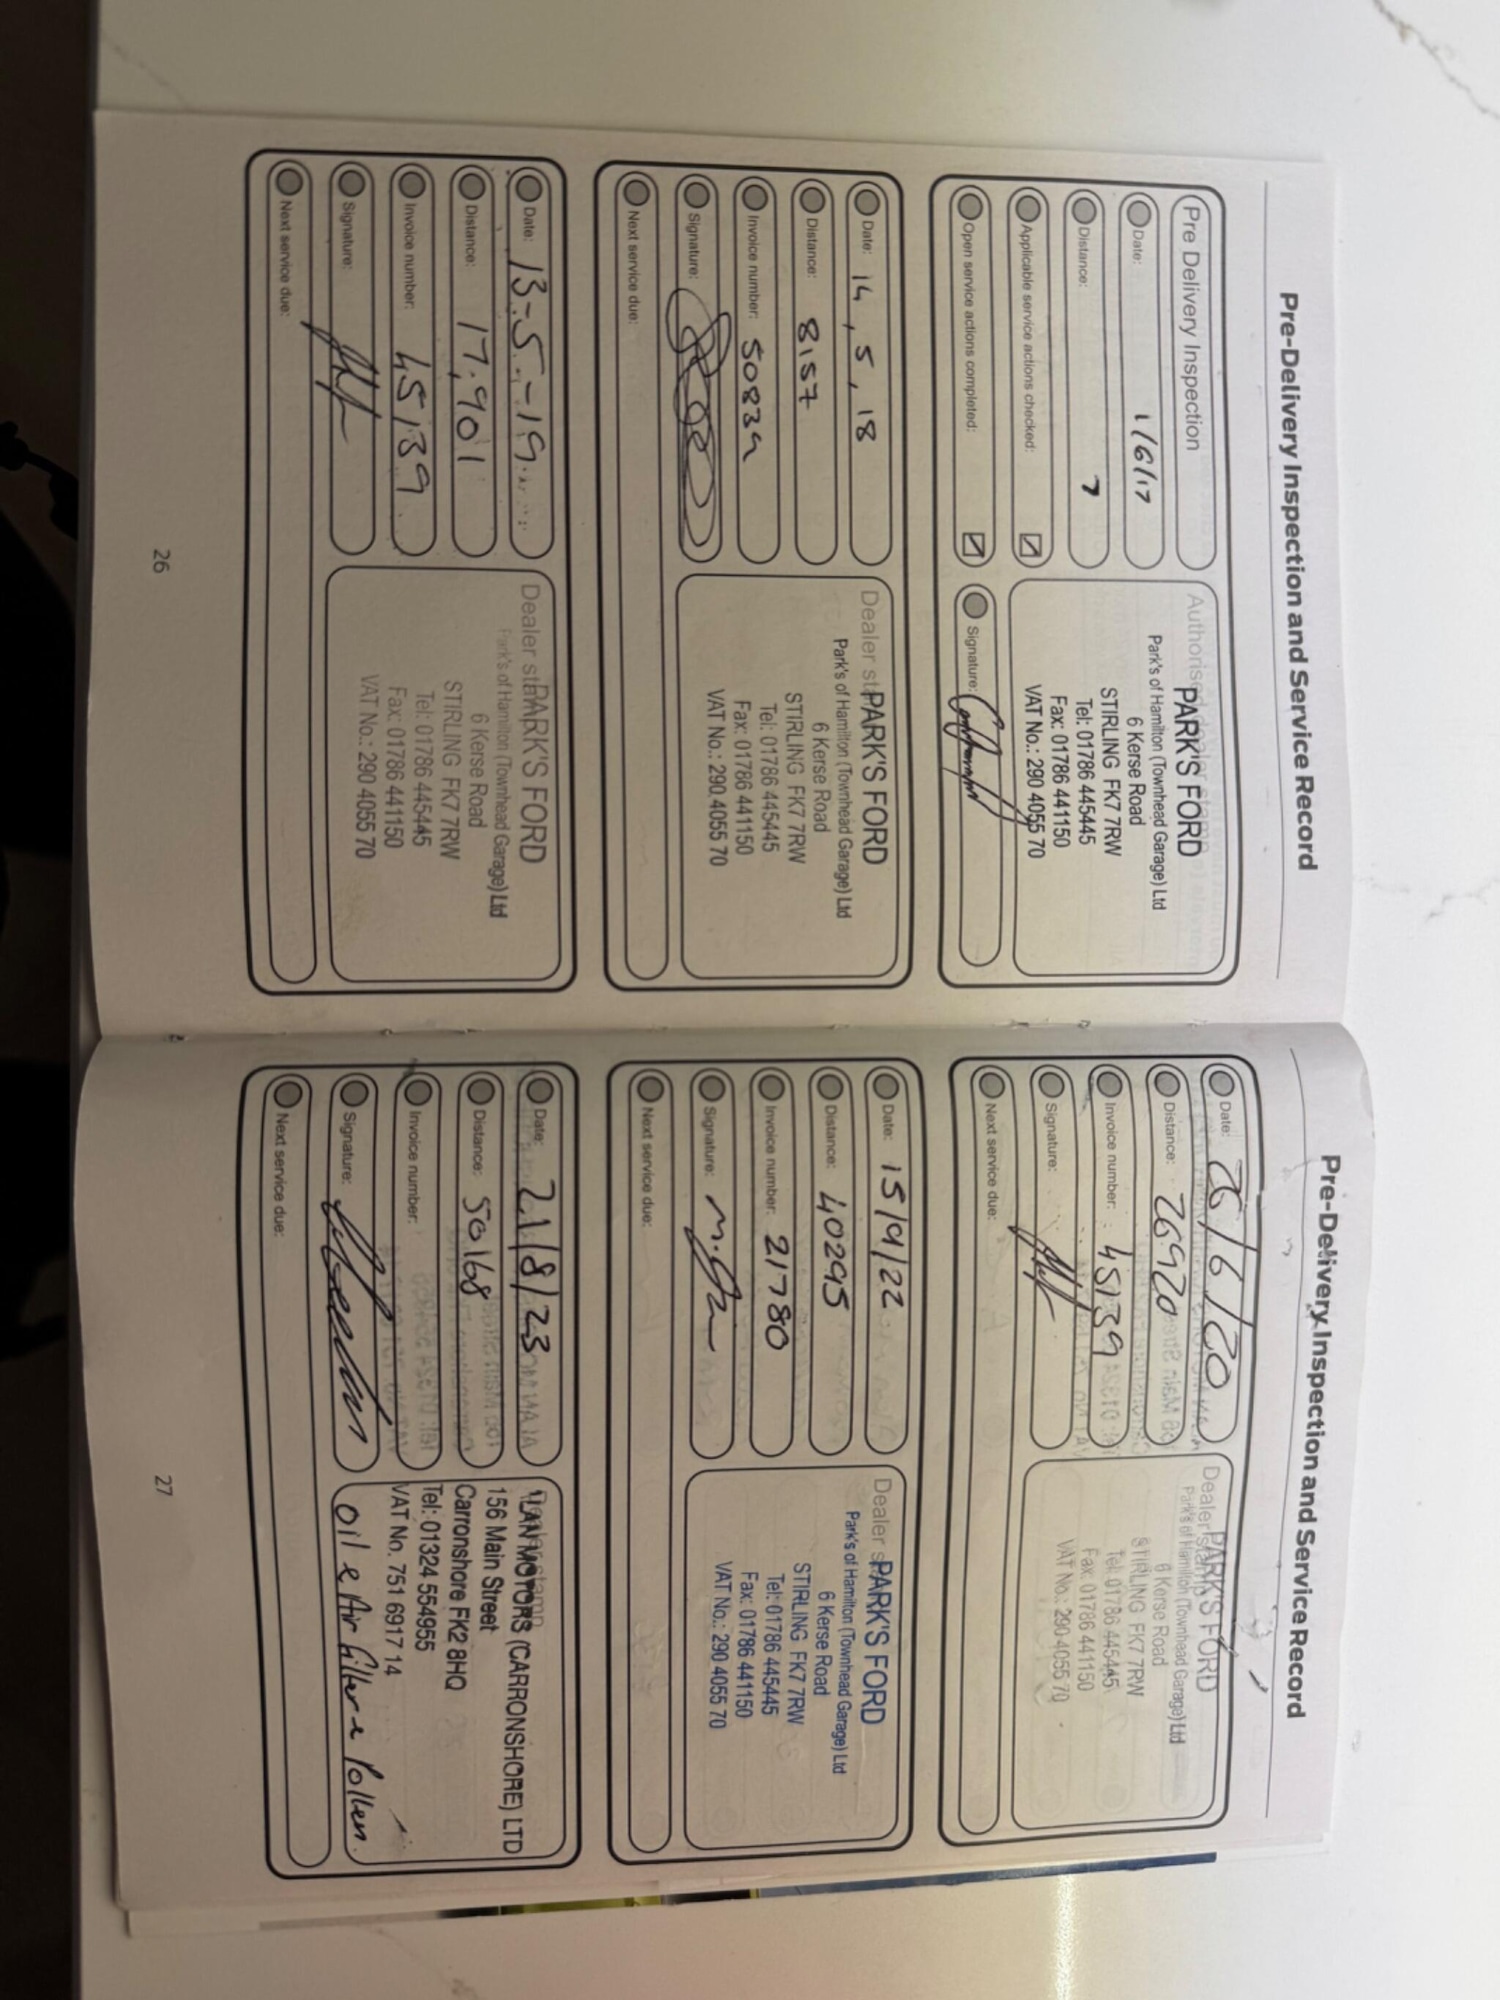 Pre-Delivery Inspection and Service Record
Pre Delivery Inspection
Date: 1/6/17
Distance: 7
Applicable service actions checked:
Open service actions completed:
Authorised dealer stamp
PARK'S FORD
Park's of Hamilton (Townhead Garage) Ltd
6 Kerse Road
STIRLING FK7 7RW
Tel: 01786 445445
Fax: 01786 441150
VAT No.: 290 4055 70
Signature:
Date: 14, 5, 18
Distance: 8157
Invoice number: 50839
Signature:
Next service due:
Dealer stamp
PARK'S FORD
Park's of Hamilton (Townhead Garage) Ltd
6 Kerse Road
STIRLING FK7 7RW
Tel: 01786 445445
Fax: 01786 441150
VAT No.: 290 4055 70
Date: 13-5-19
Distance: 17,901
Invoice number: 45139
Signature:
Next service due:
Dealer stamp
PARK'S FORD
Park's of Hamilton (Townhead Garage) Ltd
6 Kerse Road
STIRLING FK7 7RW
Tel: 01786 445445
Fax: 01786 441150
VAT No.: 290 4055 70
26
Pre-Delivery Inspection and Service Record
Date: 26/6/20
Distance: 26920
Invoice number: 45139
Signature:
Next service due:
Dealer stamp
PARK'S FORD
Park's of Hamilton (Townhead Garage) Ltd
6 Kerse Road
STIRLING FK7 7RW
Tel: 01786 445445
Fax: 01786 441150
VAT No.: 290 4055 70
Date: 15/9/22
Distance: 40295
Invoice number: 21780
Signature:
Next service due:
Dealer stamp
PARK'S FORD
Park's of Hamilton (Townhead Garage) Ltd
6 Kerse Road
STIRLING FK7 7RW
Tel: 01786 445445
Fax: 01786 441150
VAT No.: 290 4055 70
Date: 21/8/23
Distance: 50168
Invoice number:
Signature:
Next service due:
Dealer stamp
MOTORS (CARRONSHORE) LTD
156 Main Street
Carronshore FK2 8HQ
Tel: 01324 554955
VAT No. 751 6917 14
oil e Air filter e Pollen.
27